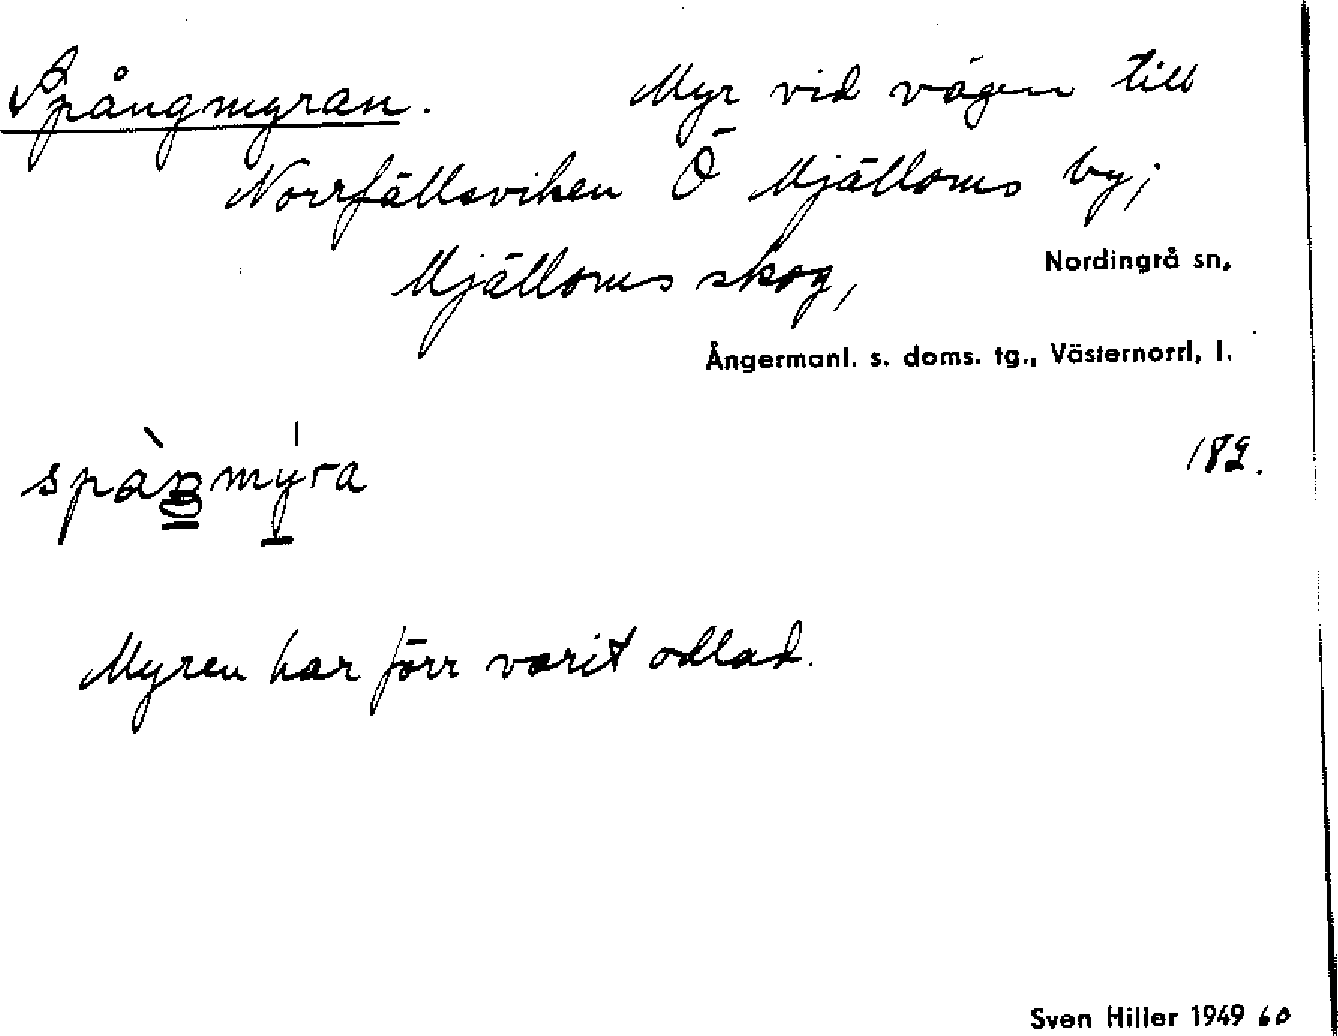 Spångmyran. Myr vid vägen till
Norrfällsviken Ö Mjälloms by;
Mjälloms skog, Nordingrå sn,
Ångermanl. s. doms. tg., Västernorrl. l.
182.
Myren har förr varit odlad.
Sven Hiller 1949 60